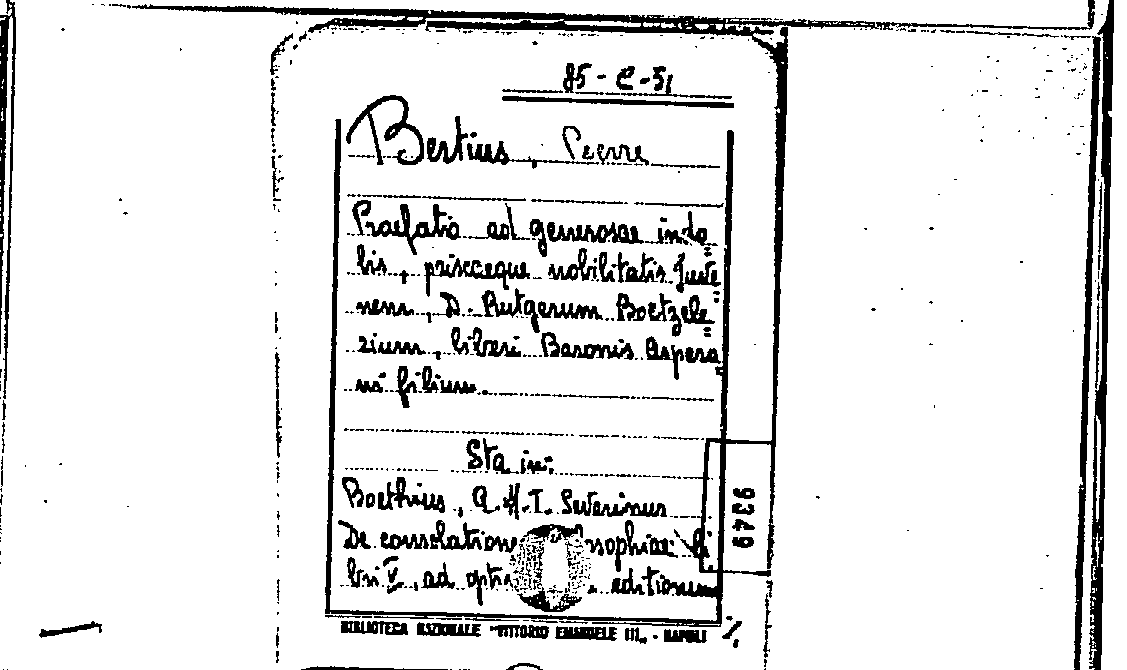 85-C-51
Bertius, Pierre
Praefatio ad generosae indo=
lis, priscaeque nobilitatis Juve=
nem, D. Rutgerum Boetzele=
zium, liberi Baronis Aspera=
ni filium.
Sta in:
Boethius, A.M.T. Severinus
De consolatione li
bri V, ad editionum
BIBLIOTECA NAZIONALE "VITTORIO EMANUELE III" - NAPOLI